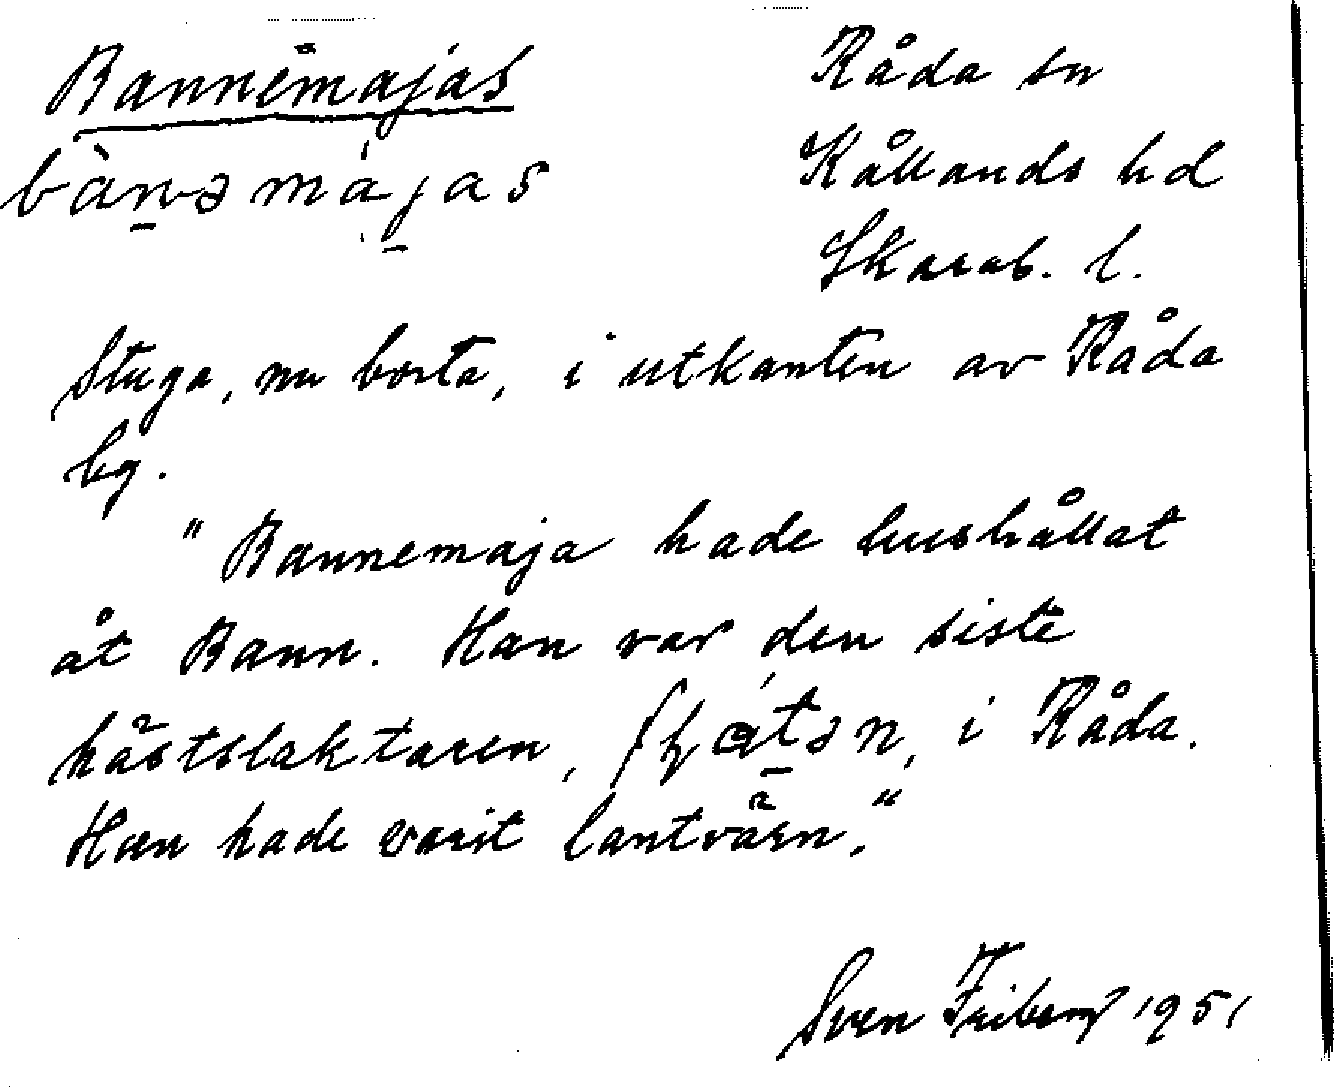 Bannemajas
bànə màjas
Råda sn
Kållands hd
Skarab. l.
Stuga, nu borta, i utkanten av Råda
bg.
"Bannemaja hade hushållat
åt Bann. Han var den siste
hästslaktaren, i Råda.
Han hade varit lantvärn."
Sven Friberg 1951